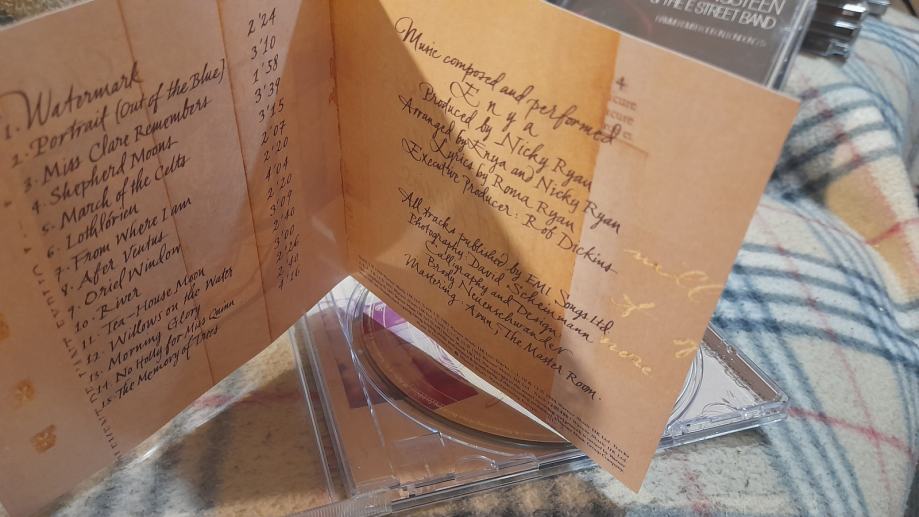 1. Watermark 2'24
2. Portrait (Out of the Blue) 3'10
3. Miss Clare Remembers 1'58
4. Shepherd Moons 3'39
5. March of the Celts 3'15
6. Lothlórien 2'07
7. From Where I am 2'20
8. Afer Ventus 4'04
9. Oriel Window 2'20
10. River 3'09
11. Tea-House Moon 2'40
12. Willows on the Water 3'00
13. Morning Glory 2'26
14. No Holly for Miss Quinn 2'40
15. The Memory of Trees 4'16
Music composed and performed
Enya
Produced by Nicky Ryan
Arranged by Enya and Nicky Ryan
Lyrics by Roma Ryan
Executive Producer: Rob Dickins
All tracks published by EMI Songs Ltd.
Photography David Scheinmann
Calligraphy and Design
Brody Neuenschwander
Mastering - Arun The Master Room.
& THE E STREET BAND